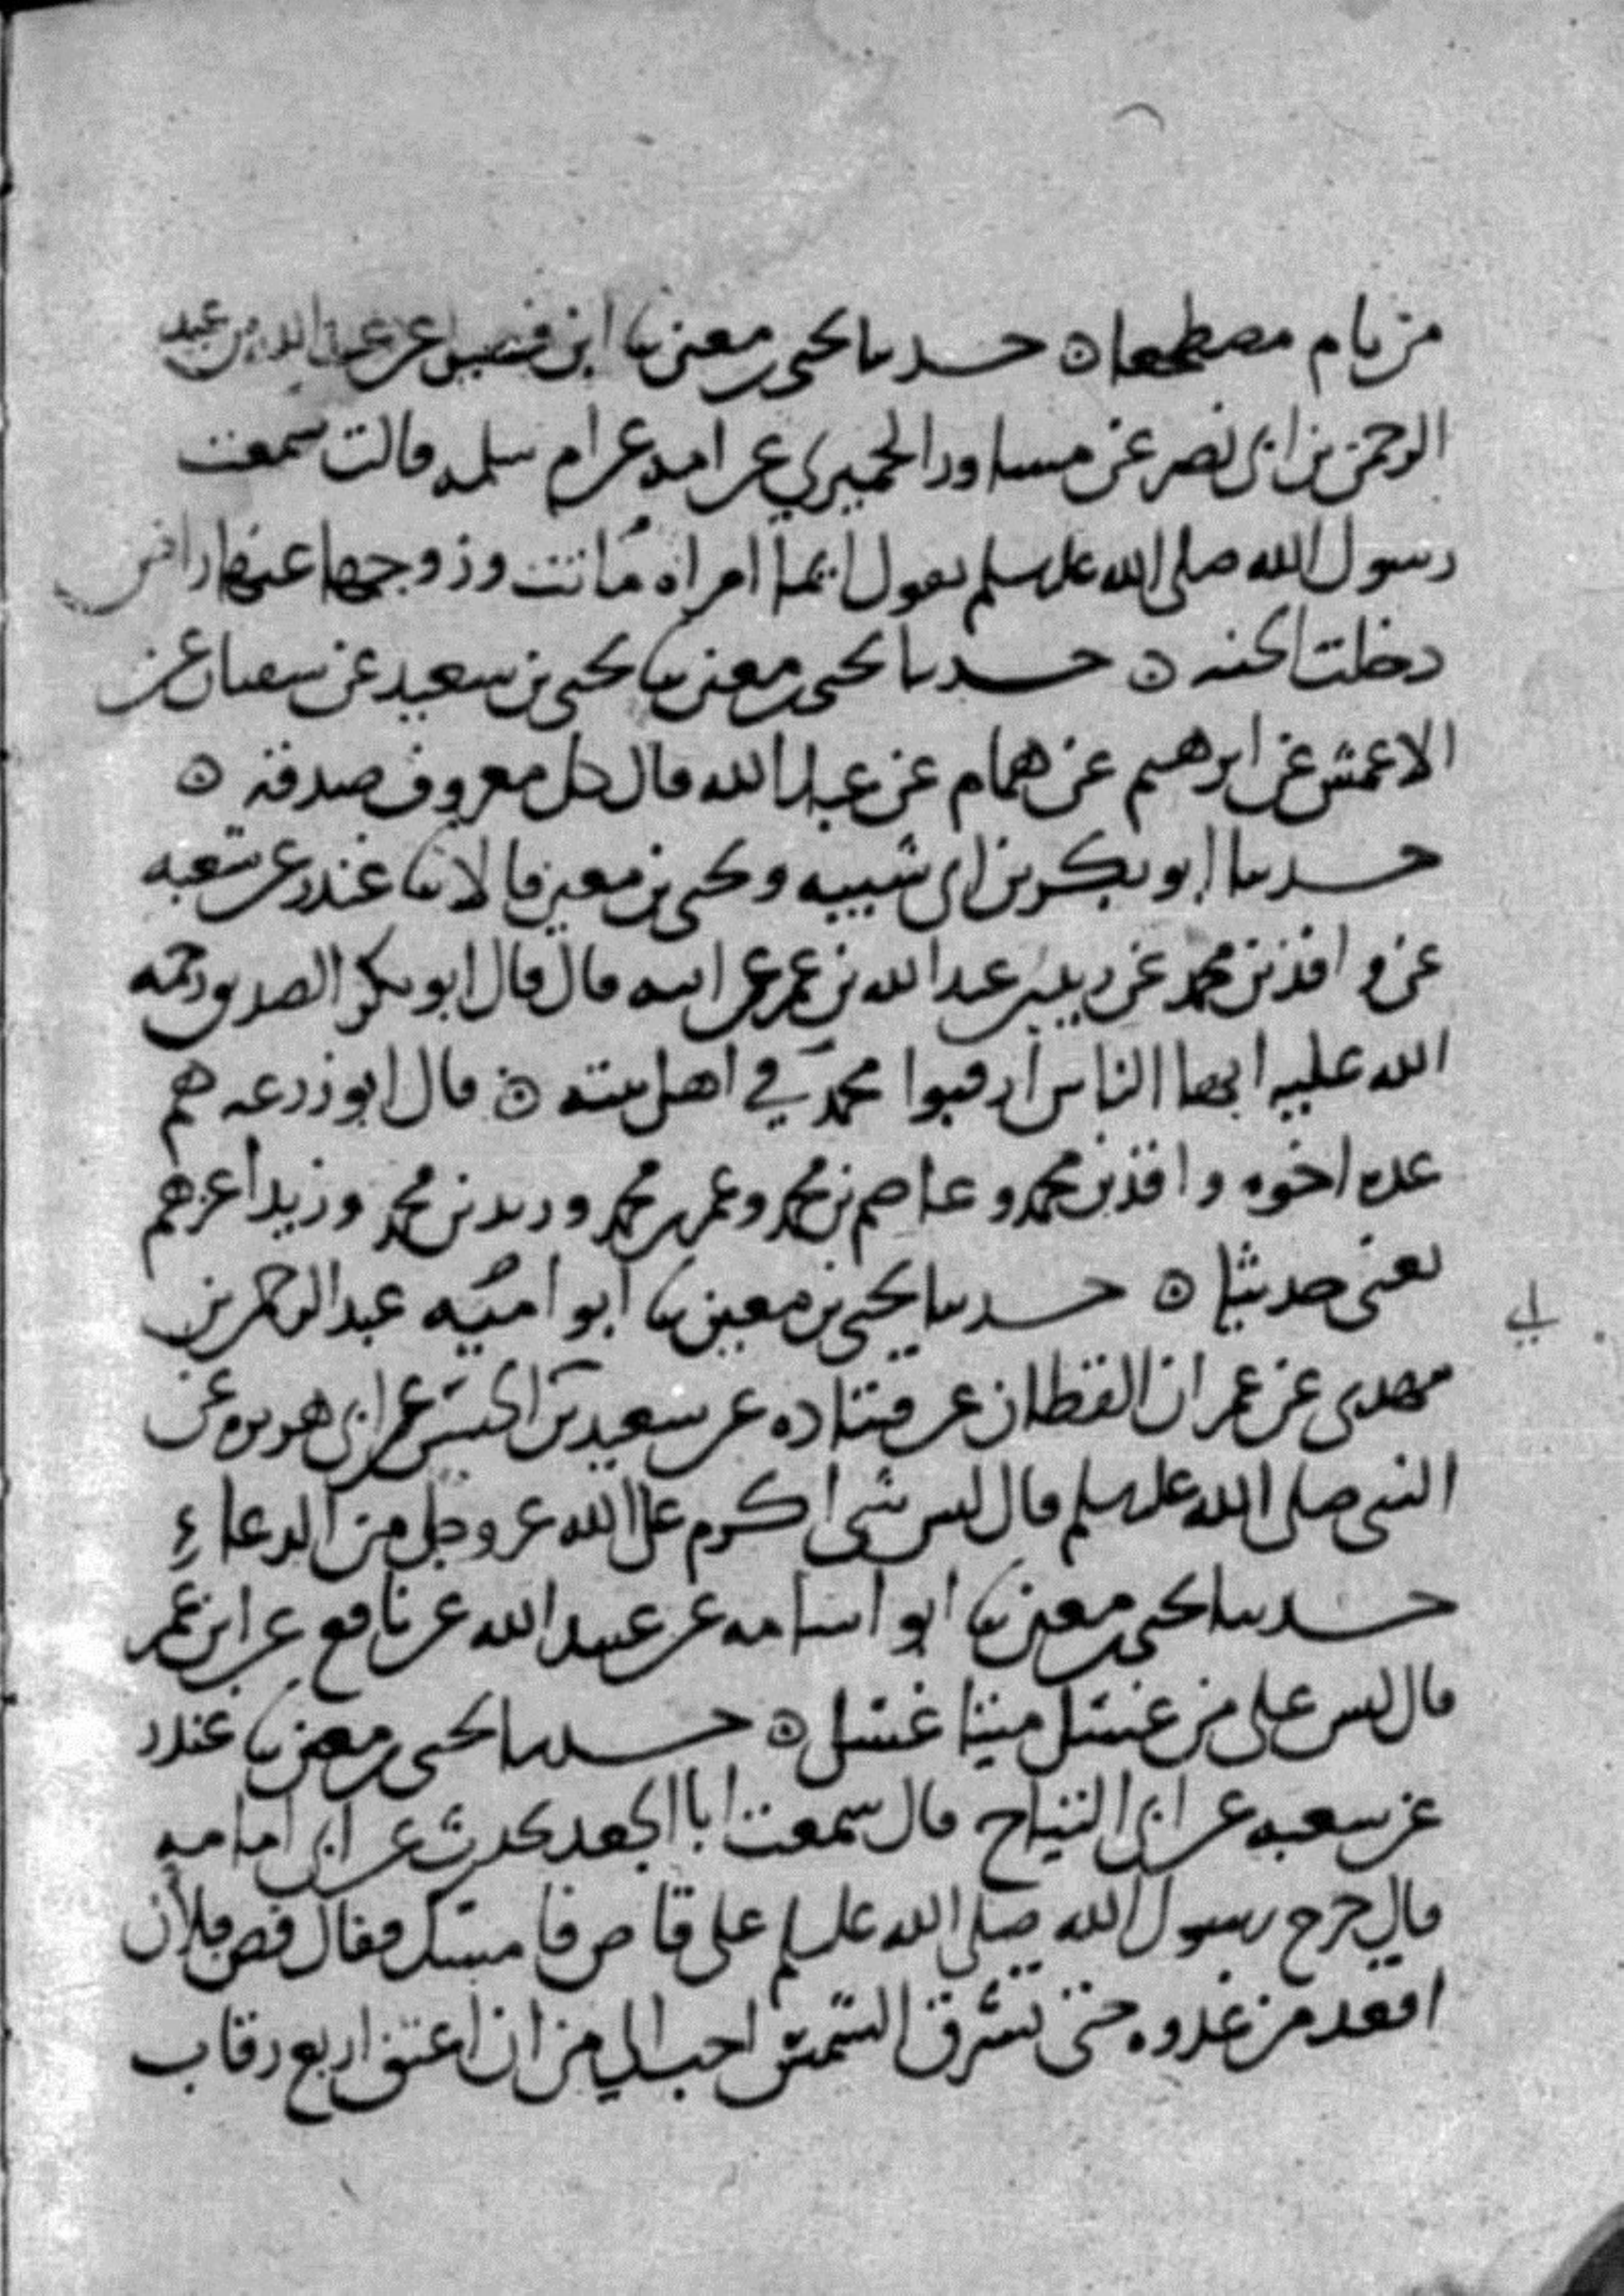 من نام مضطجعا ۞ حدثنا يحيى بن معين ثنا ابن فضيل عن عبد الله بن عبد
الرحمن بن ابي نصر عن مساور الحميري عن امه عن ام سلمه قالت سمعت
رسول الله صلى الله عليه وسلم يقول ايما امراه ماتت وزوجها عنها راض
دخلت الجنه ۞ حدثنا يحيى بن معين ثنا يحيى بن سعيد عن سفيان عن
الاعمش عن ابرهيم عن همام عن عبد الله قال كل معروف صدقة ۞
حدثنا ابو بكر بن ابي شيبه ويحيى بن معين قالا ثنا غندر عن شعبه
عن واقد بن محمد عن زيد بن عبد الله بن عمر عن ابيه قال قال ابو بكر الصديق رحمه
الله عليه ايها الناس ارقبوا محمد في اهل بيته ۞ قال ابو زرعه هم
عده اخوه واقد بن محمد وعاصم بن محمد وعمر بن محمد وزيد بن محمد وزيد اعزهم
يعني حديثا ۞ حدثنا يحيى بن معين ثنا ابو اميه عبد الرحمن بن
مهدي عن عمران القطان عن قتاده عن سعيد بن ابي الحسن عن ابي هريره عن
النبي صلى الله عليه وسلم قال ليس شي اكرم على الله عز وجل من الدعاء
حدثنا يحيى بن معين ثنا ابو اسامه عن عبيد الله عن نافع عن ابن عمر
قال ليس على من غسل ميتا غسل ۞ حدثنا يحيى بن معين ثنا غندر
عن شعبه عن ابي التياح قال سمعت ابا الجعد يحدث عن ابي امامه
قال خرج رسول الله صلى الله عليه وسلم على قاص فامسك فقال قص فلان
اقعد من غدوه حتى تشرق الشمس احب الي من ان اعتق اربع رقاب